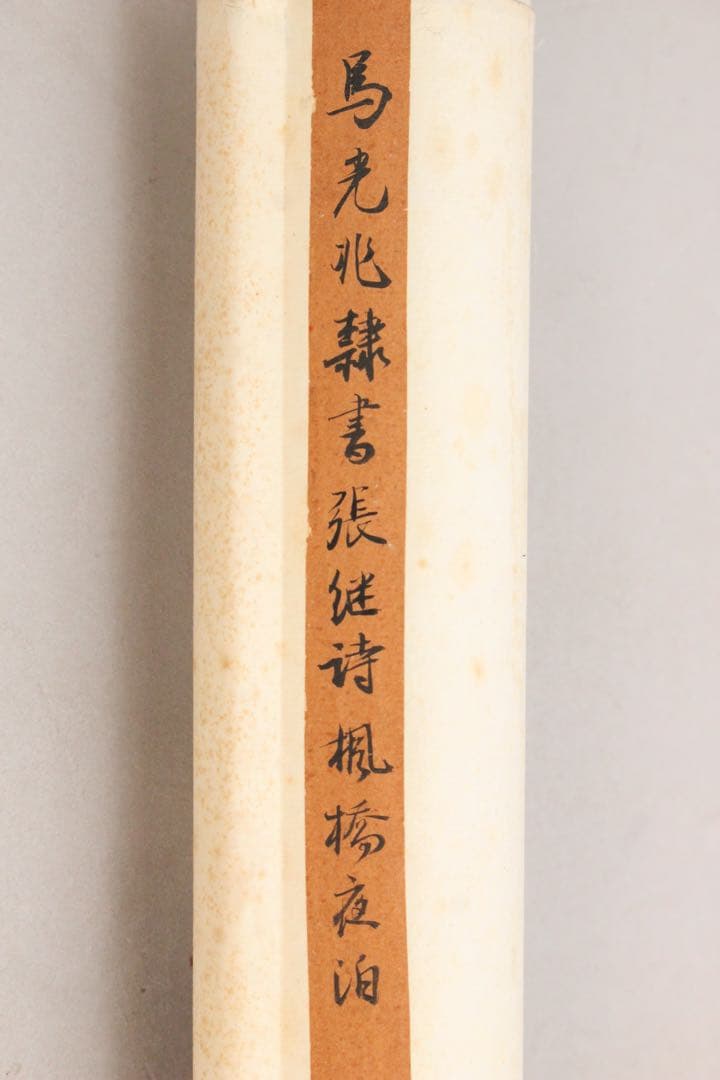 馬光兆隸書張继诗楓橋夜泊